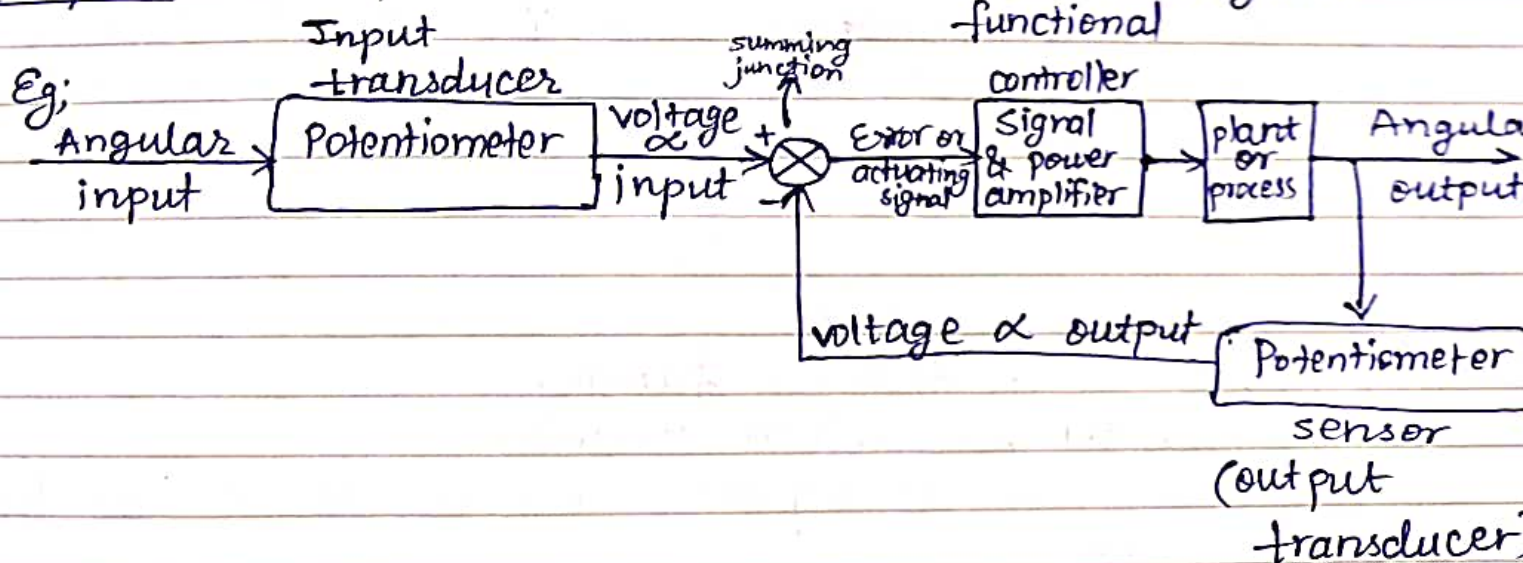 functional
Input
transducer
summing
junction
controller
Eg;
Angular
input
Potentiometer
voltage
∝
input
+
-
Error or
actuating
signal
Signal
& power
amplifier
plant
or
process
Angula
output
voltage ∝ output
Potentiometer
sensor
(output
transducer)